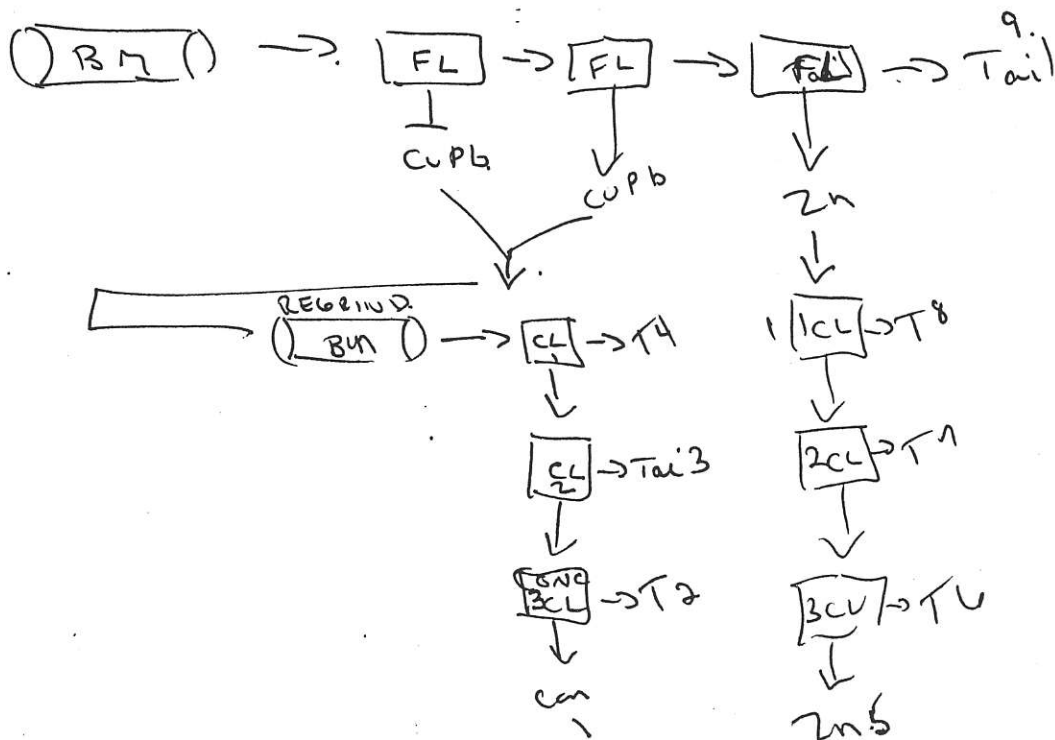 9.
BM FL FL Tail
CuPb
CuPb
Zn
REGRIND.
BM CL 1 T4
1 1CL T8
CL 2 Tai 3
2CL T7
3CL T2
3CL T6
con
1
Zn 5